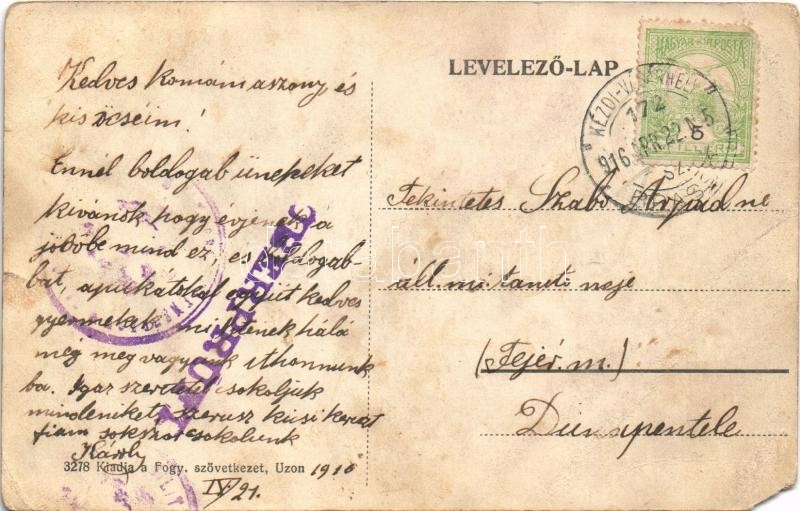 LEVELEZŐ-LAP
MAGYAR KIR. POSTA
KÉZDI-VÁSÁRHELY
172
916 APR. 22. N. 5
5
Kedves Komámaszony és
kis öcséim!
Ennél boldogab ünepeket
kivánok hogy érjenek a
jövőbe mind ez, es boldogab-
bat, apukatokal együt kedves
gyermekek mi Istenek hálá
még meg vagyunk ithonnunk
ba. Igaz szeretetel csokoljuk
mindeniket, szerusz kicsi kereszt
fiam sokszor csokolunk
Károly
1916
IV/21.
Tekintetes Szabó Árpád ne
áll. mi. tanitó neje
(Fejér m.)
Dunapentele
3278 Kiadja a Fogy. szövetkezet, Uzon
darabanth